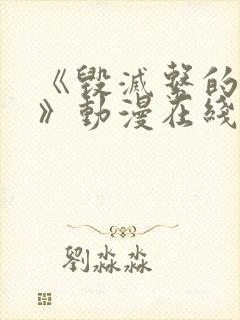 《毀滅釜的
》動漫在綫
劉淼淼